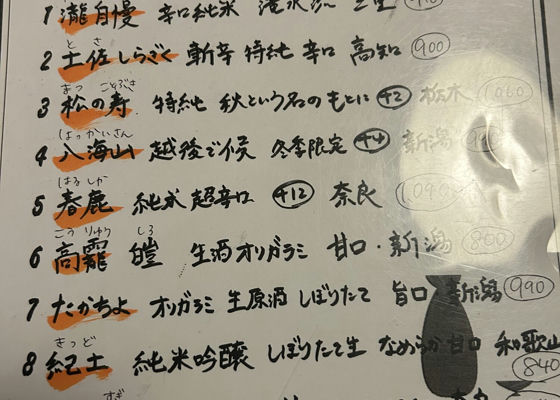 1 瀧自慢 辛口純米 滝水流 三重
とさ
2 土佐しらぎく 斬辛 特純 辛口 高知 900
まつ ことぶき
3 松の寿 特純 秋という名のもとに +2 栃木 1060
はっかいさん
4 八海山 越後で候 冬季限定 +4 新潟
はるしか
5 春鹿 純米 超辛口 +12 奈良 1090
こうりゅう しろ
6 高龗 皚 生酒オリガラミ 甘口・新潟 860
7 たかちよ オリガラミ 生原酒 しぼりたて 旨口 新潟 990
きっど
8 紀土 純米吟醸 しぼりたて生 なめらか甘口 和歌山 840